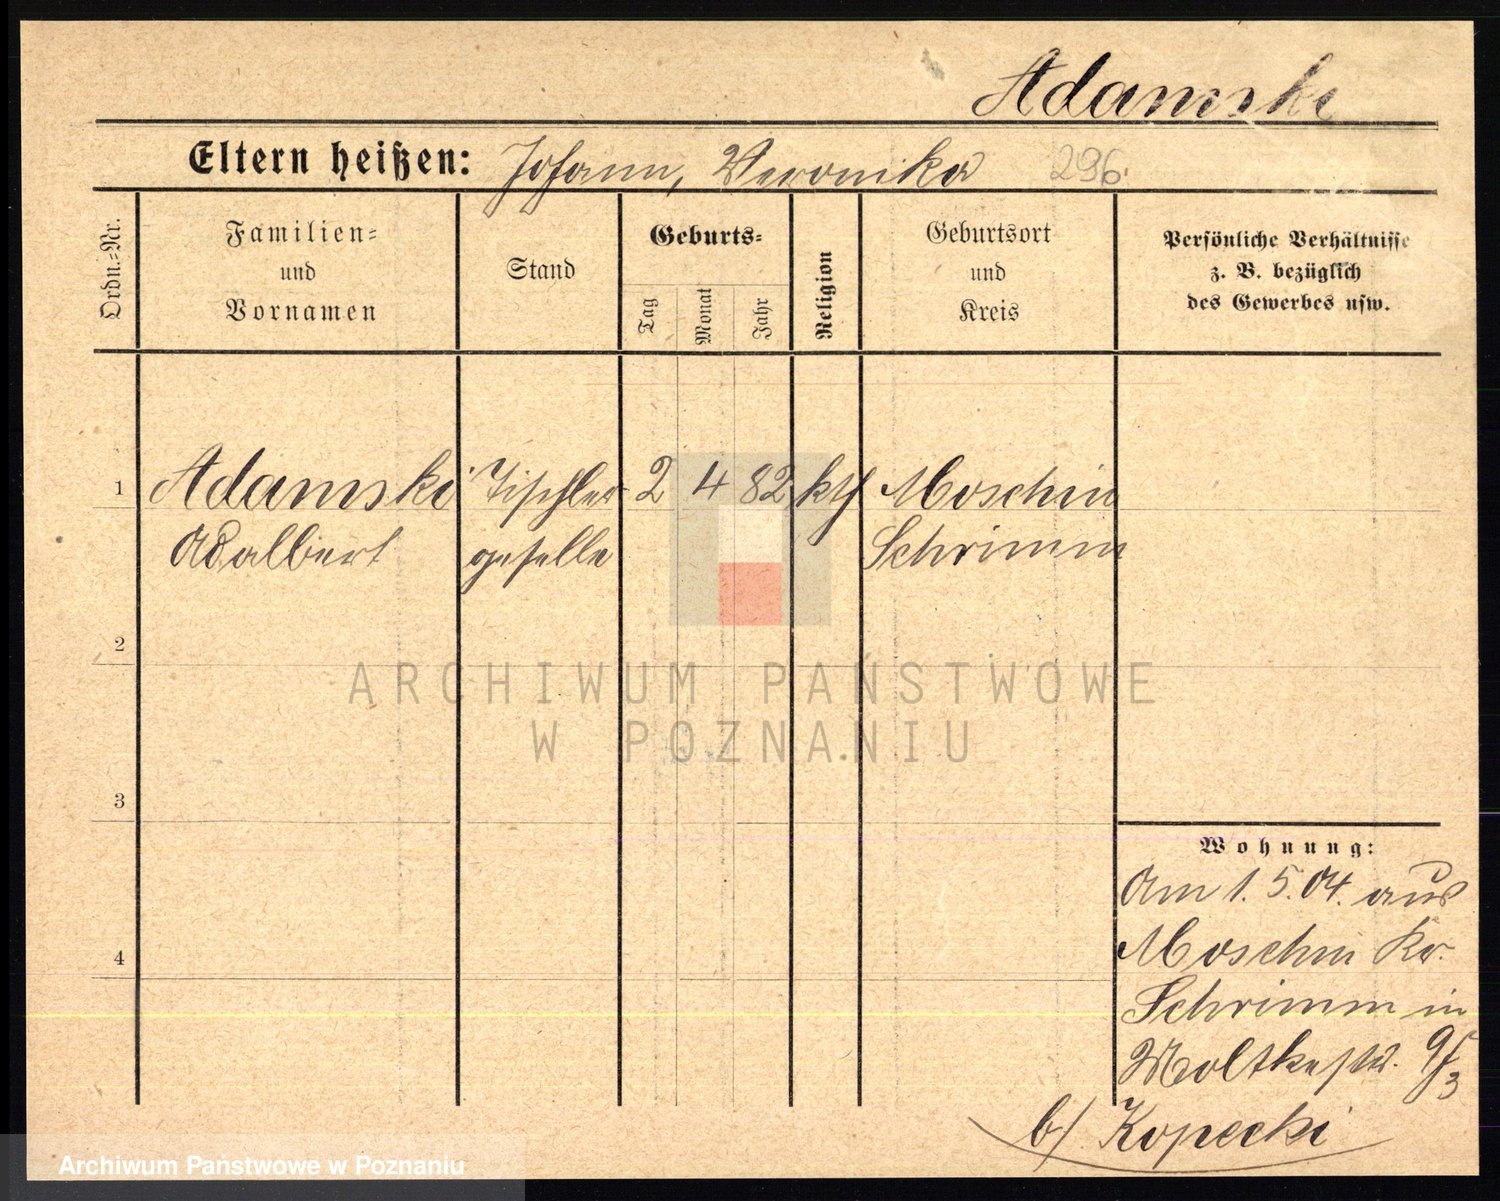 Adamski
Eltern heißen: Johann, Veronika 296.
Ordn.-Nr.
Familien-
und
Vornamen
Stand
Geburts-
Tag
Monat
Jahr
Religion
Geburtsort
und
Kreis
Persönliche Verhältnisse
z. B. bezüglich
des Gewerbes usw.
1 Adamski Tischler- 2 4 82 kth Moschin
Adalbert geselle Schrimm
2
ARCHIWUM PAŃSTWOWE
W POZNANIU
3
Wohnung:
Am 1.5.04. aus
Moschin Kr.
4
Schrimm in
Moltkestr. 9/3
b/ Kopecki
Archiwum Państwowe w Poznaniu